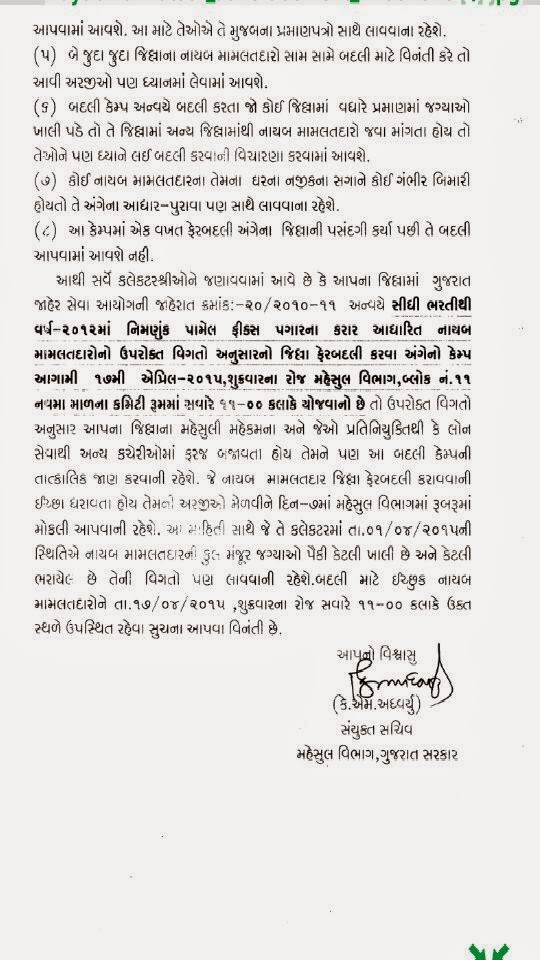 આપવામાં આવશે. આ માટે તેઓએ તે મુજબના પ્રમાણપત્રો સાથે લાવવાના રહેશે.
(૫) બે જુદા જુદા જિલ્લાના નાયબ મામલતદારો સામ સામે બદલી માટે વિનંતી કરે તો
આવી અરજીઓ પણ ધ્યાનમાં લેવામાં આવશે.
(૬) બદલી કેમ્પ અન્વયે બદલી કરતા જો કોઈ જિલ્લામાં વધારે પ્રમાણમાં જગ્યાઓ
ખાલી પડે તો તે જિલ્લામાં અન્ય જિલ્લામાંથી નાયબ મામલતદારો જવા માંગતા હોય તો
તેઓને પણ ધ્યાને લઈ બદલી કરવાની વિચારણા કરવામાં આવશે.
(૭) કોઈ નાયબ મામલતદારના તેમના ઘરના નજીકના સગાને કોઈ ગંભીર બિમારી
હોયતો તે અંગેના આધાર-પુરાવા પણ સાથે લાવવાના રહેશે.
(૮) આ કેમ્પમાં એક વખત ફેરબદલી અંગેના જિલ્લાની પસંદગી કર્યા પછી તે બદલી
આપવામાં આવશે નહી.
આથી સર્વે કલેકટરશ્રીઓને જણાવવામાં આવે છે કે આપના જિલ્લામાં ગુજરાત
જાહેર સેવા આયોગની જાહેરાત ક્રમાંક:-૨૦/૨૦૧૦-૧૧ અન્વયે સીધી ભરતીથી
વર્ષ-૨૦૧૨માં નિમણુંક પામેલ ફીક્સ પગારના કરાર આધારિત નાયબ
મામલતદારોનો ઉપરોક્ત વિગતો અનુસારનો જિલ્લા ફેરબદલી કરવા અંગેનો કેમ્પ
આગામી ૧૭મી એપ્રિલ-૨૦૧૫,શુક્રવારના રોજ મહેસુલ વિભાગ,બ્લોક નં.૧૧
નવમા માળના કમિટી રૂમમાં સવારે ૧૧-૦૦ કલાકે યોજવાનો છે તો ઉપરોક્ત વિગતો
અનુસાર આપના જિલ્લાના મહેસુલી મહેકમના અને જેઓ પ્રતિનિયુક્તિથી કે લોન
સેવાથી અન્ય કચેરીઓમાં ફરજ બજાવતા હોય તેમને પણ આ બદલી કેમ્પની
તાત્કાલિક જાણ કરવાની રહેશે. જે નાયબ મામલતદાર જિલ્લા ફેરબદલી કરાવવાની
ઈચ્છા ધરાવતા હોય તેમની અરજીઓ મેળવીને દિન-૭માં મહેસુલ વિભાગમાં રૂબરૂમાં
મોકલી આપવાની રહેશે. આ માહિતી સાથે જે તે કલેકટરમાં તા.૦૧/૦૪/૨૦૧૫ની
સ્થિતિએ નાયબ મામલતદારની કુલ મંજૂર જગ્યાઓ પૈકી કેટલી ખાલી છે અને કેટલી
ભરાયેલ છે તેની વિગતો પણ લાવવાની રહેશે.બદલી માટે ઈચ્છુક નાયબ
મામલતદારોને તા.૧૭/૦૪/૨૦૧૫ ,શુક્રવારના રોજ સવારે ૧૧-૦૦ કલાકે ઉક્ત
સ્થળે ઉપસ્થિત રહેવા સુચના આપવા વિનંતી છે.
આપનો વિશ્વાસુ
(કે.એમ.અધ્વર્યુ)
સંયુક્ત સચિવ
મહેસુલ વિભાગ,ગુજરાત સરકાર